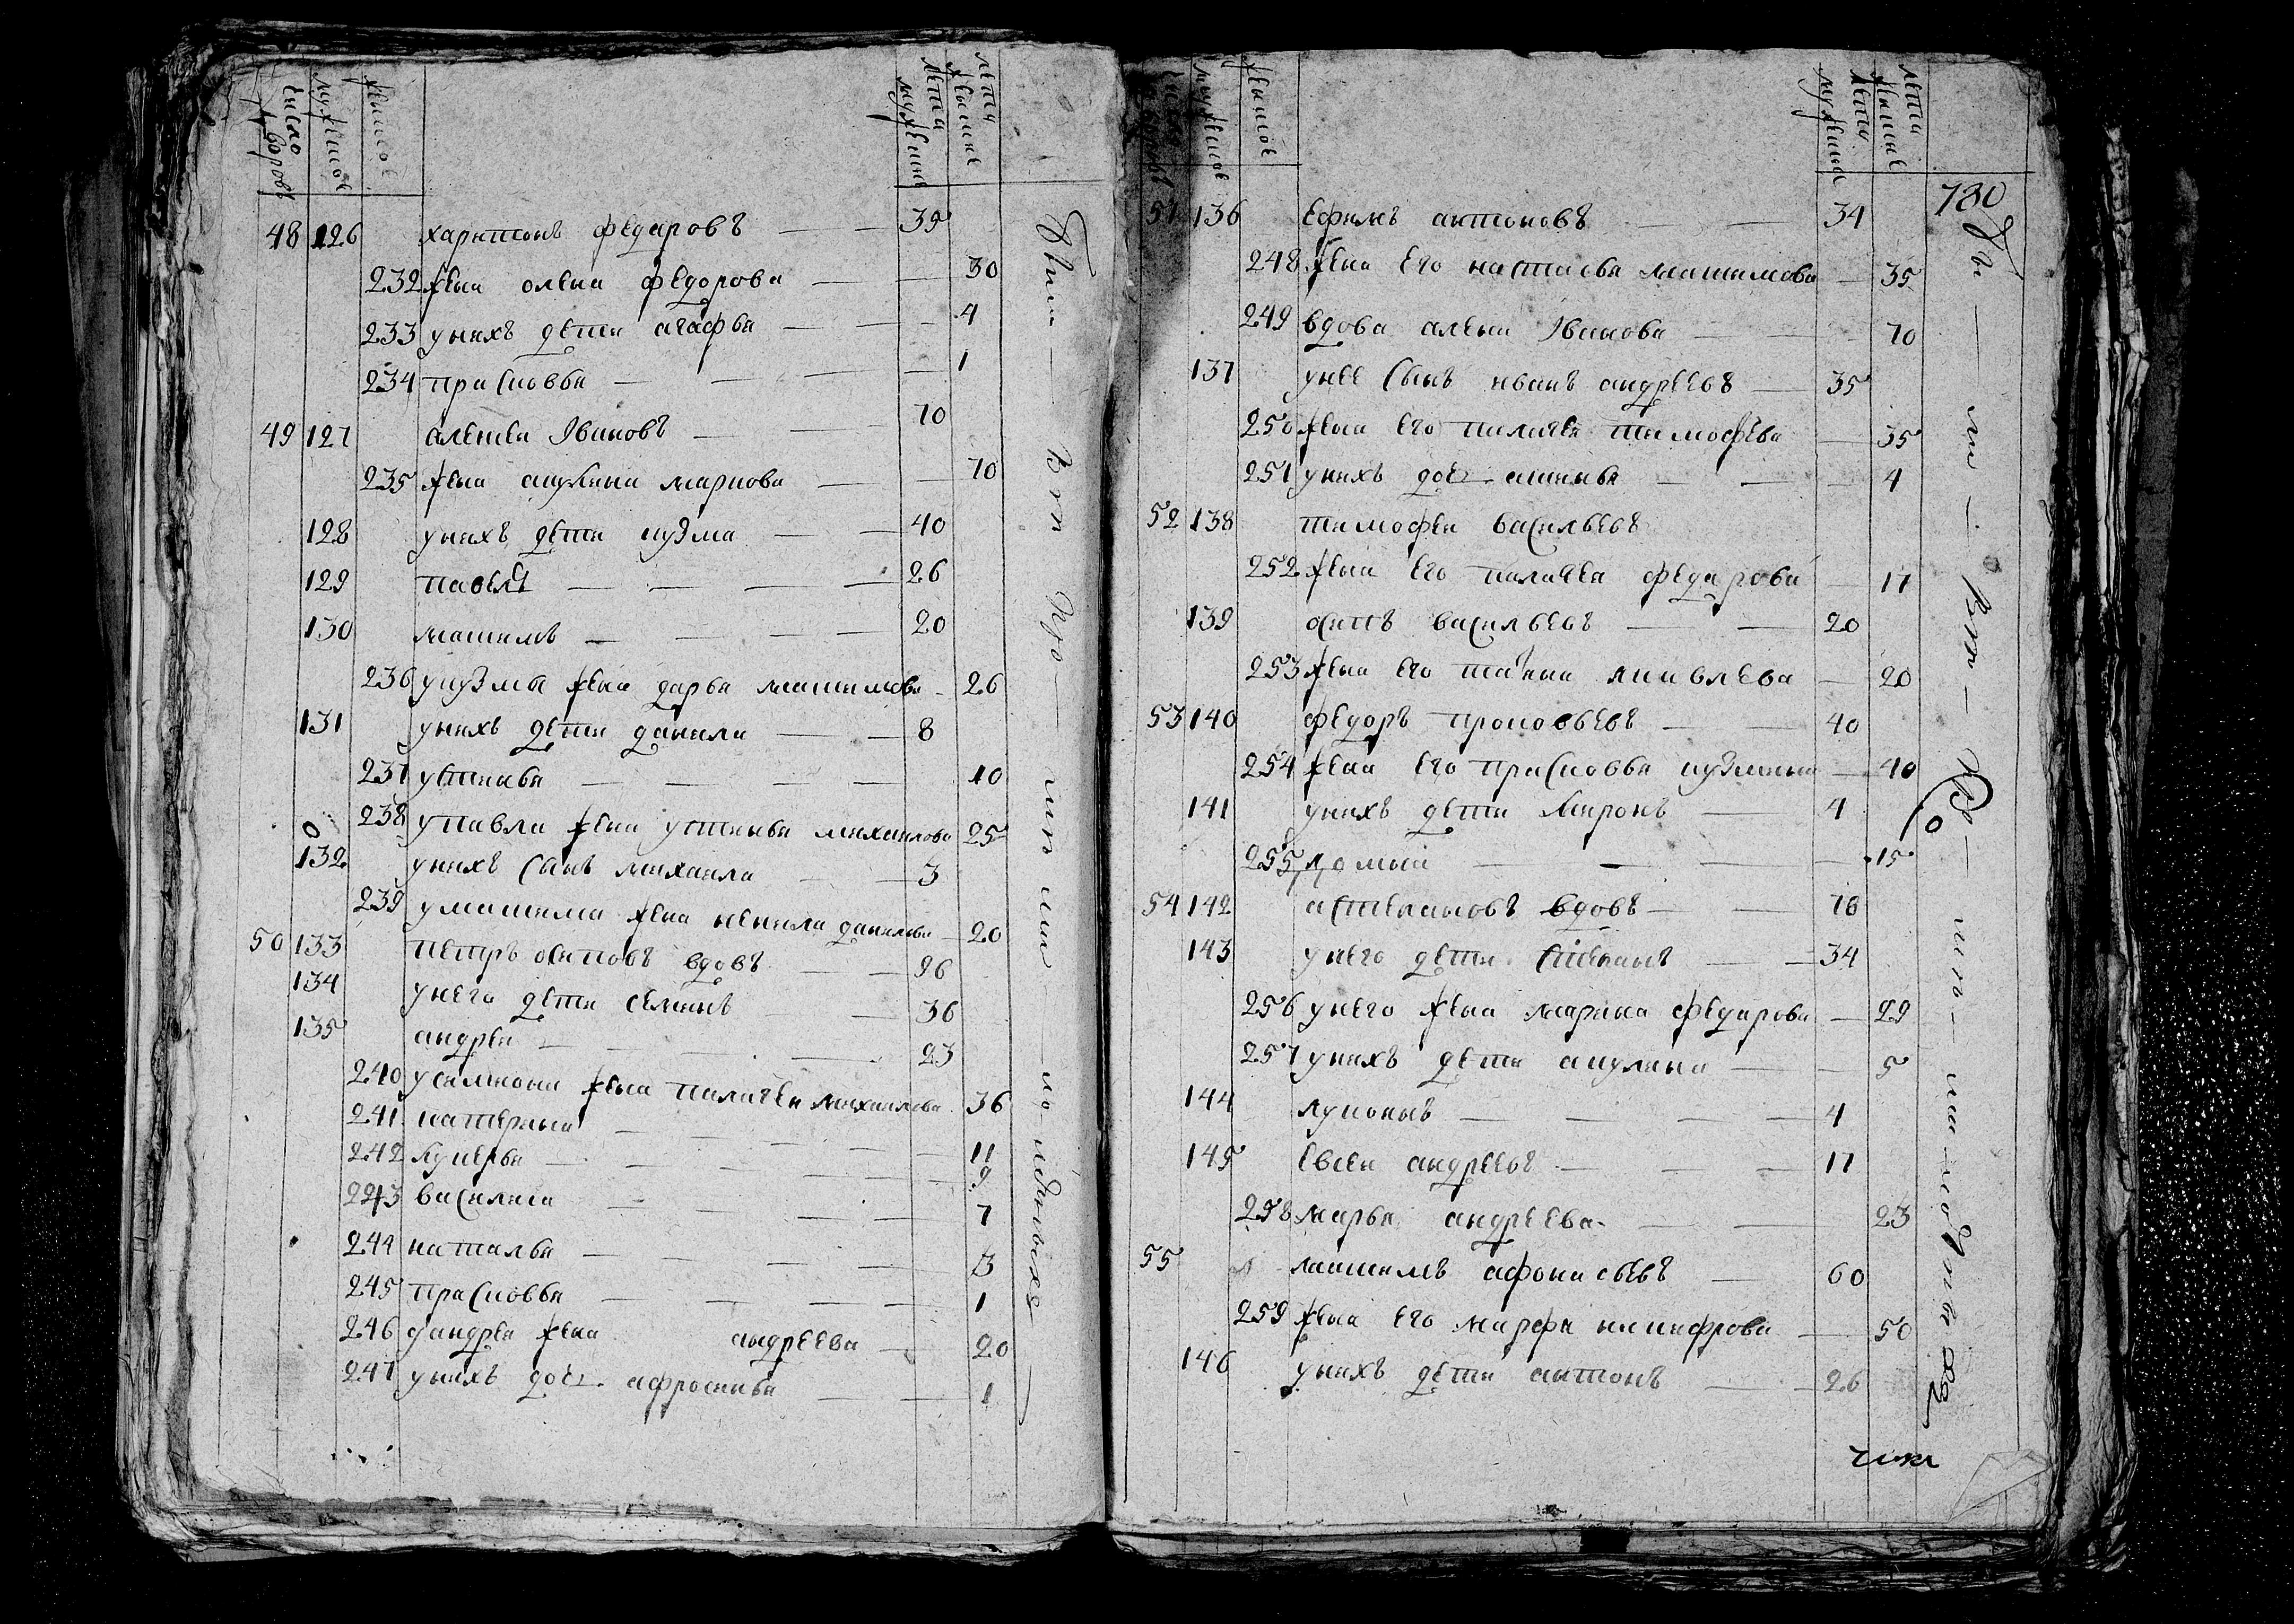 число дворовъ мужескъ женскъ лета мужеские лета женские
48 126 харитонъ федаровъ 39
232 жена олена федорова 30
233 унихъ дети агафья 4
234 прасковья 1
49 127 алексеи Ивановъ 70
235 жена акулина маркова 70
128 унихъ дети кузма 40
129 павелъ 26
130 максимъ 20
236 укузмы жена дарья максимова 26
131 унихъ дети данила 8
237 устинья 10
238 упавла жена устинья михаилова 25
132 унихъ сынъ михаила 3
239 умаксима жена ненила данилова 20
50 133 петръ осиповъ вдовъ 96
134 унего дети семенъ 36
135 андреи 23
240 усимиона жена палагея михаилова 36
241 катерина 11
242 лукерья 9
243 василиса 7
244 наталья 3
245 прасковья 1
246 уандрея жена андреева 20
247 унихъ доч афросинья 1
780
51 136 ефимъ антоновъ 34
248 жена его настасья максимова 35
249 вдова алена Иванова 70
137 унее сынъ иванъ андреевъ 35
250 жена его палагея тимофева 35
251 унихъ доч аксинья 4
52 138 тимофеи васильевъ
252 жена его палагея федарова 17
139 осипъ васильевъ 20
253 жена его татьяна яковлева 20
53 140 федоръ прокофьевъ 40
254 жена его прасковья кузмина 40
141 унихъ дети миронъ 4
255 домна 15
54 142 астепановъ вдовъ 70
143 унего дети степанъ 34
256 унего жена марина федарова 29
257 унихъ дети акулина 5
144 лукоянъ 4
145 евсеи андреевъ 17
258 марья андреева 23
55 максимъ афонасьевъ 60
259 жена его марфа никифрова 50
146 унихъ дети антонъ 26